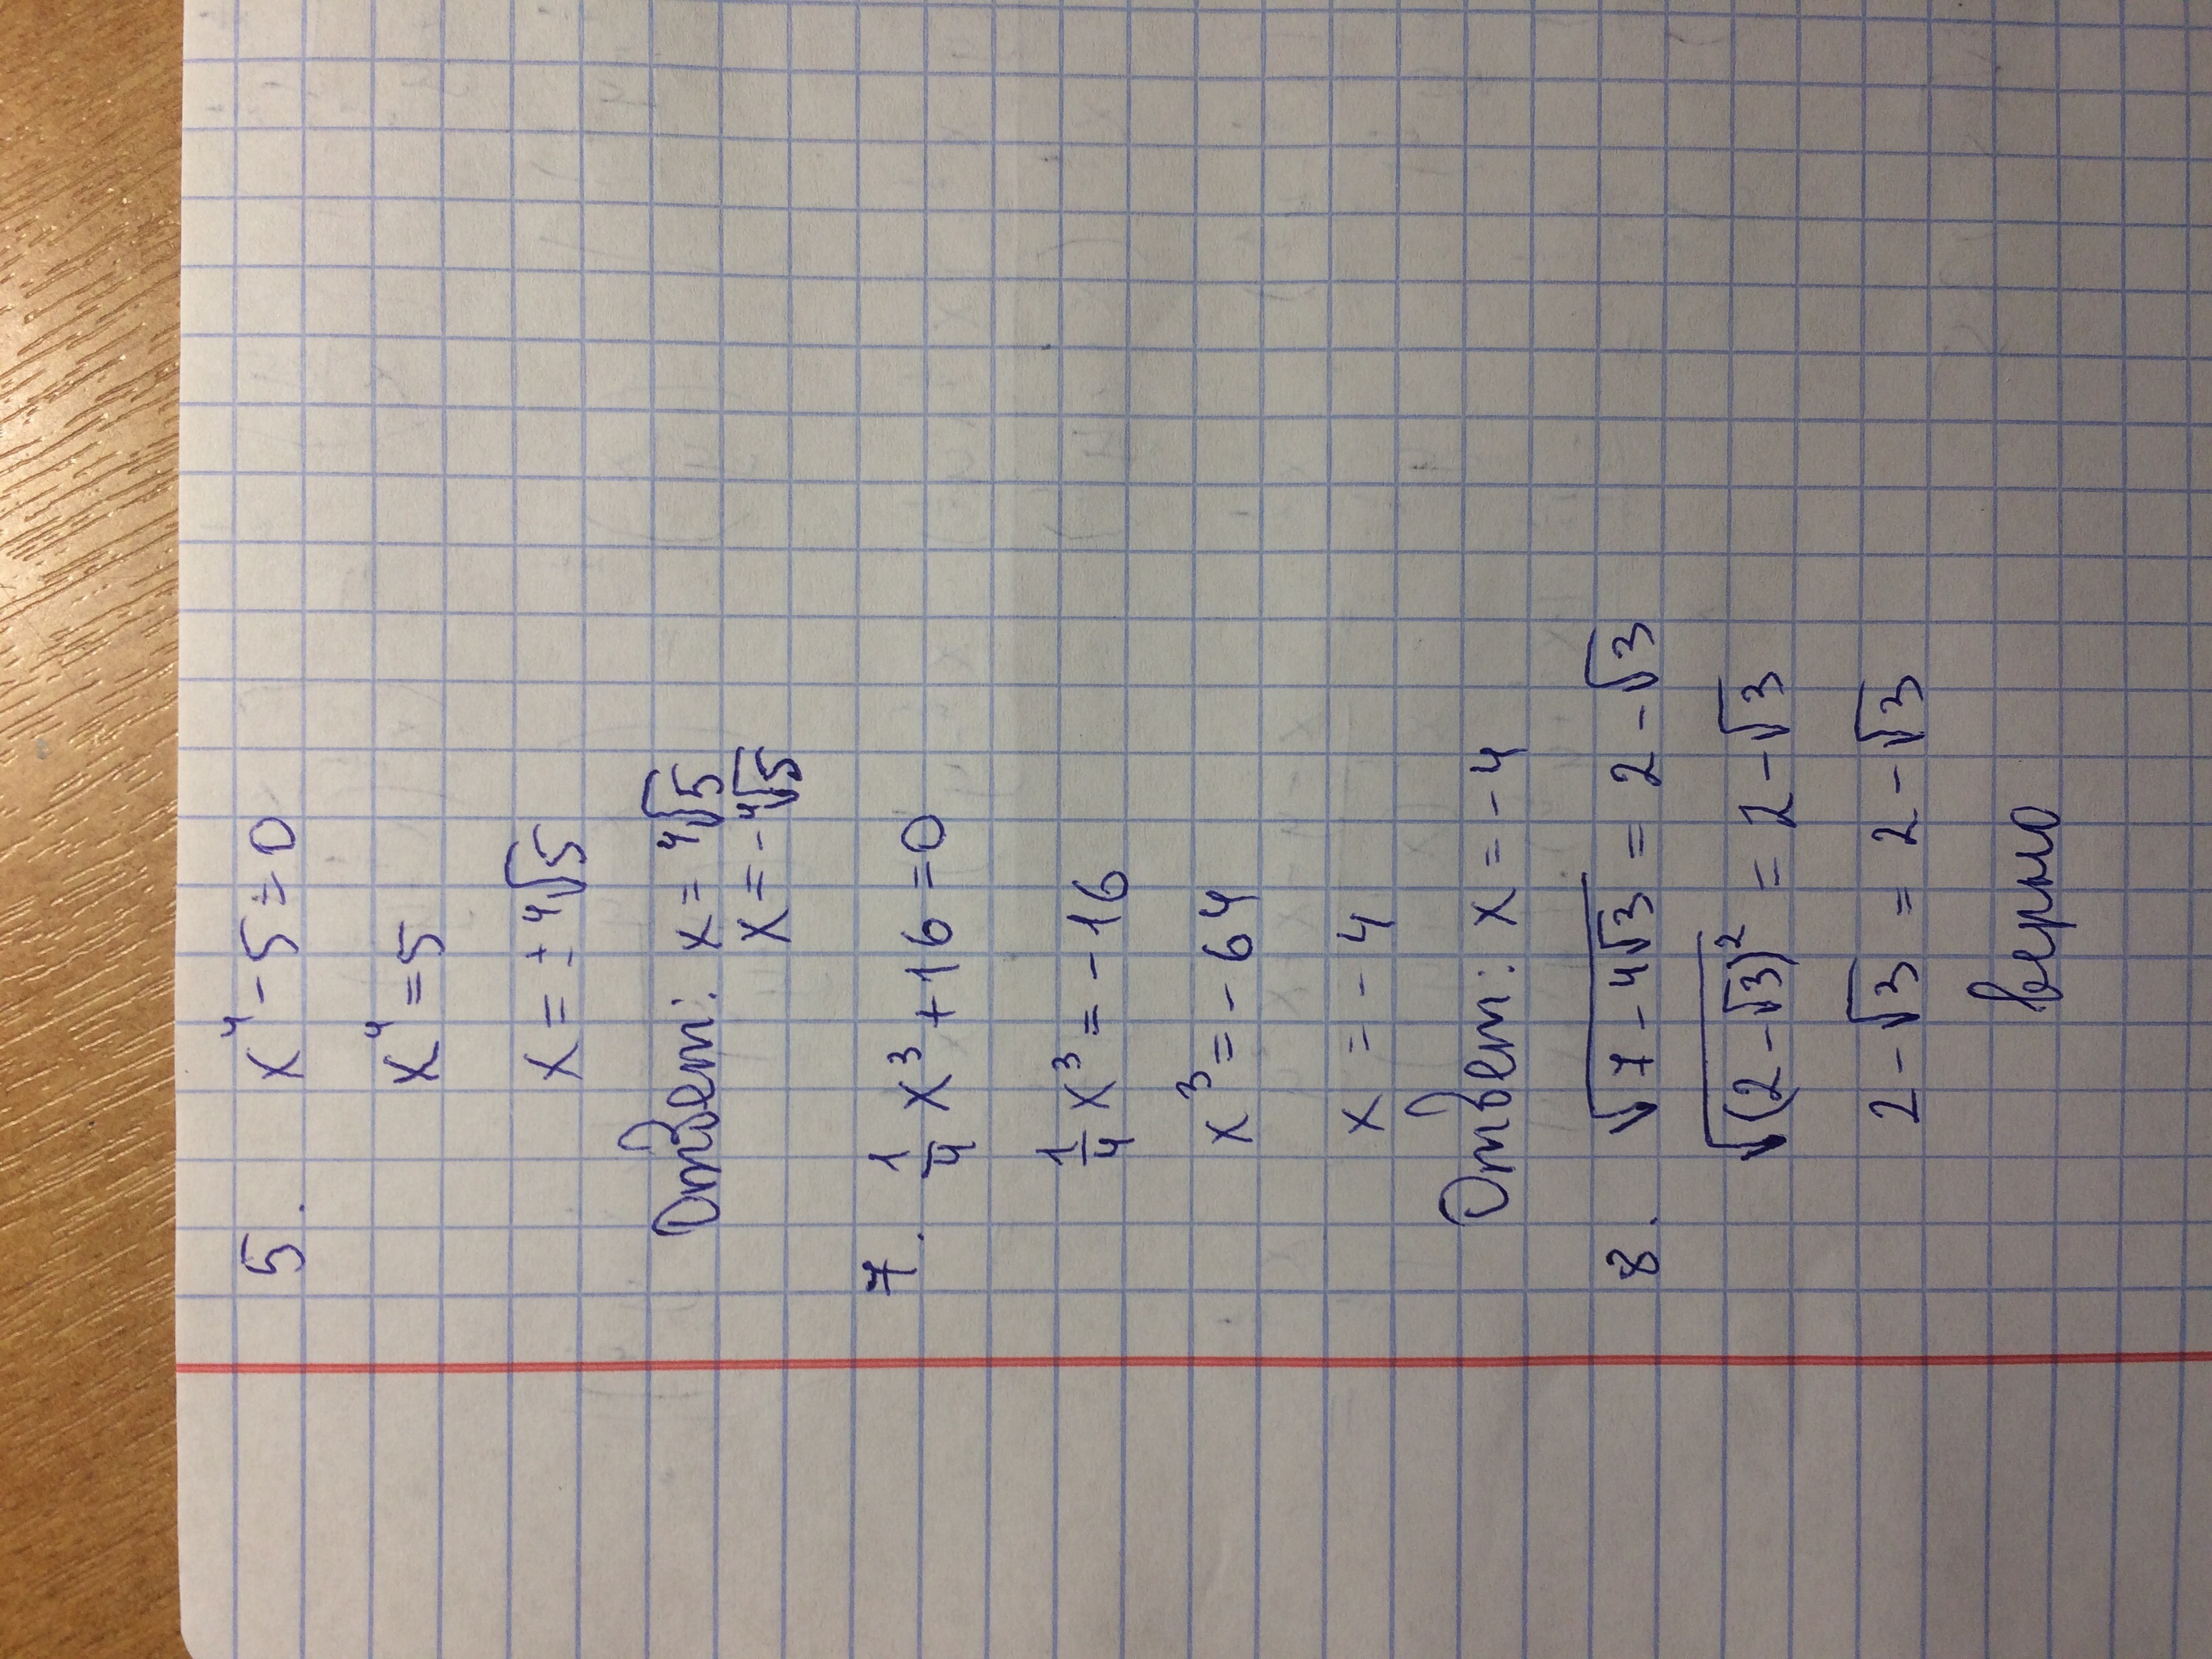 5. x⁴ - 5 = 0
x⁴ = 5
x = ± ⁴√5
Ответ: x = ⁴√5
x = - ⁴√5
7. 1/4 x³ + 16 = 0
1/4 x³ = - 16
x³ = - 64
x = - 4
Ответ: x = - 4
8. √(7 - 4√3) = 2 - √3
√((2 - √3)²) = 2 - √3
2 - √3 = 2 - √3
верно